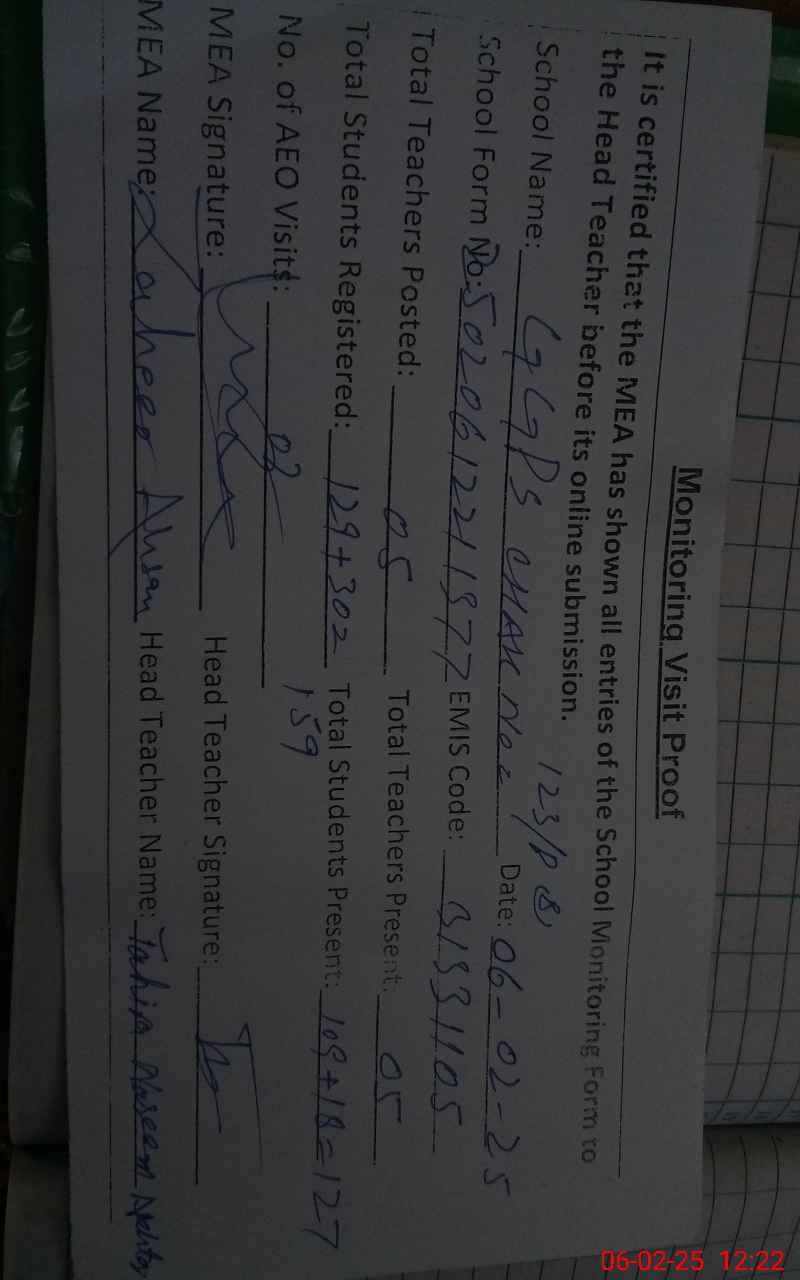 Monitoring Visit Proof
It is certified that the MEA has shown all entries of the School Monitoring Form to
the Head Teacher before its online submission.
School Name: GGPS CHAK No. 123/P Date: 06-02-25
School Form No: EMIS Code: 31331105
Total Teachers Posted: 05 Total Teachers Present: 05
Total Students Registered: 129+302 Total Students Present: 109+18=127
159
No. of AEO Visits: 02
MEA Signature: Head Teacher Signature:
MEA Name: Ahsan Head Teacher Name: Tahira Naseem
06-02-25 12:22